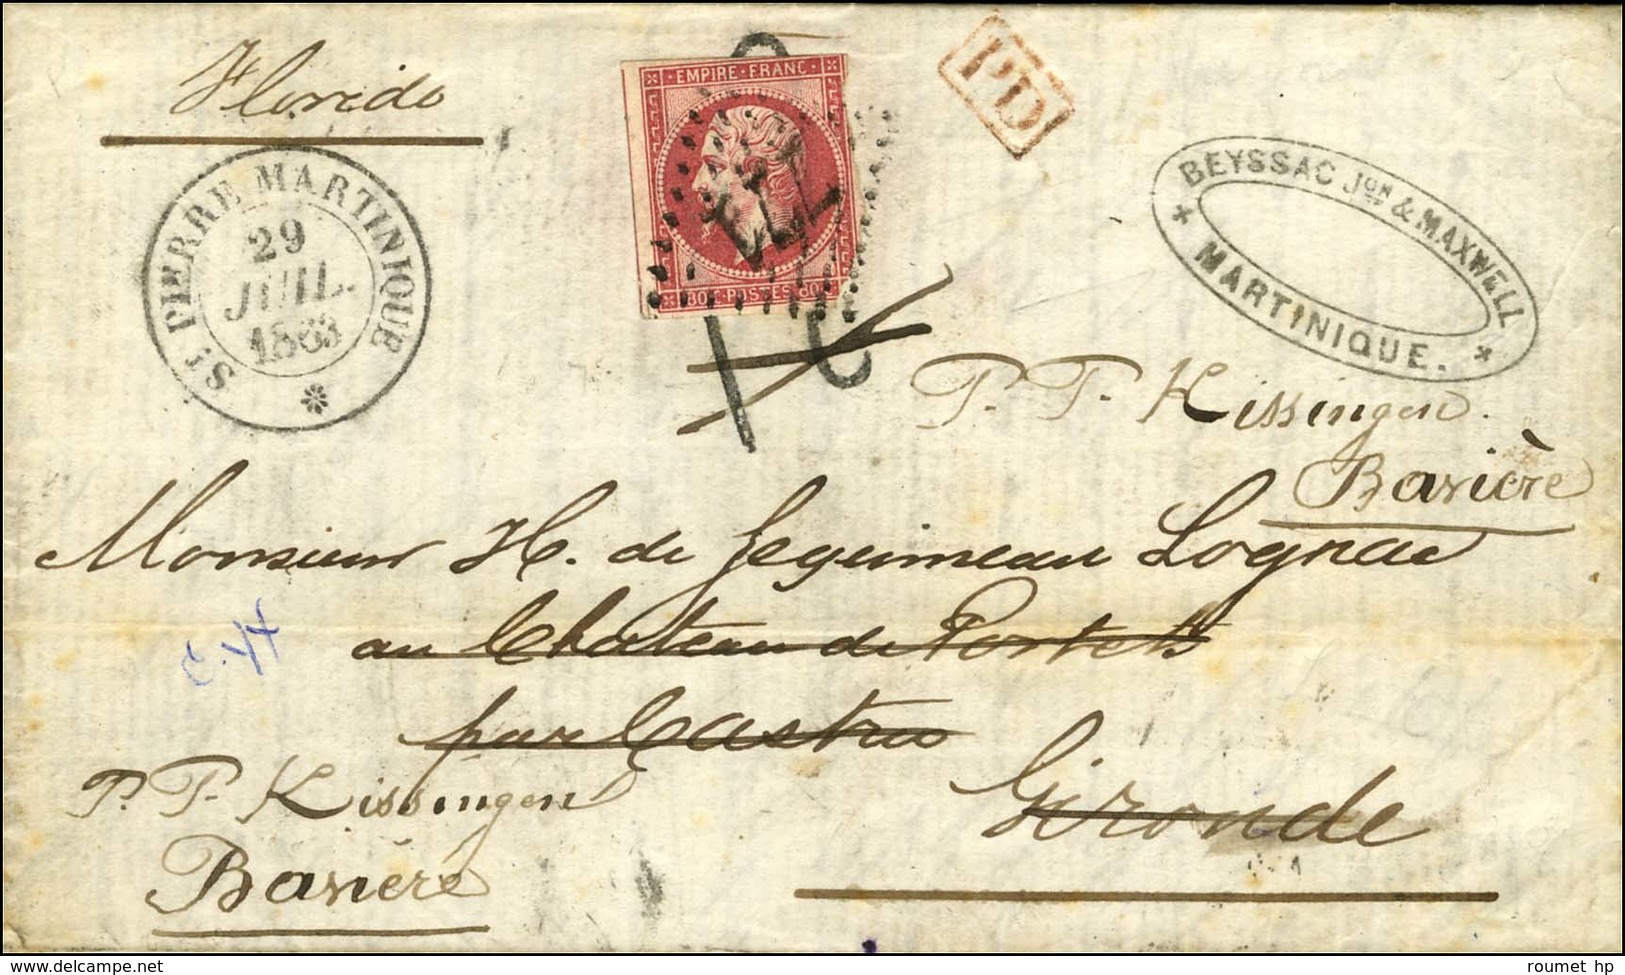 Floride
EMPIRE · FRANC ·
80 C · POSTES · 80
PD
ST PIERRE MARTINIQUE
29
JUIL.
1863
BEYSSAC Jon & MAXWELL
MARTINIQUE.
P. P. Kissingen.
Bavière
Monsieur H. de Lognac
au Chateau de Portets
par Castres
Gironde
P. P. Kissingen
Bavière
delcampe.net
roumet hp